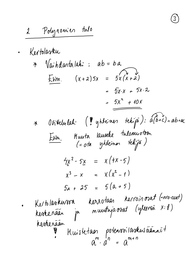 3
2 Polynomien tulo
• Kertolasku
* Vaihdantalaki: ab = ba
Esim. (x+2)5x = 5x(x+2)
= 5x·x + 5x·2
= 5x² + 10x
* Osittelulaki: (! yhteinen tekijä): a(b+c) = ab+ac
Esim. Muuta tulomuotoon
(= ota yhteinen tekijä)
4x² - 5x = x(4x-5)
x³ - x = x(x²-1)
5a + 25 = 5(a+5)
• Kertolaskussa kerrotaan kertoimet
keskenään ja muuttujaosat
keskenään
! Muistetaan potenssilaskusäännöt
aᵐ·aⁿ = aᵐ⁺ⁿ